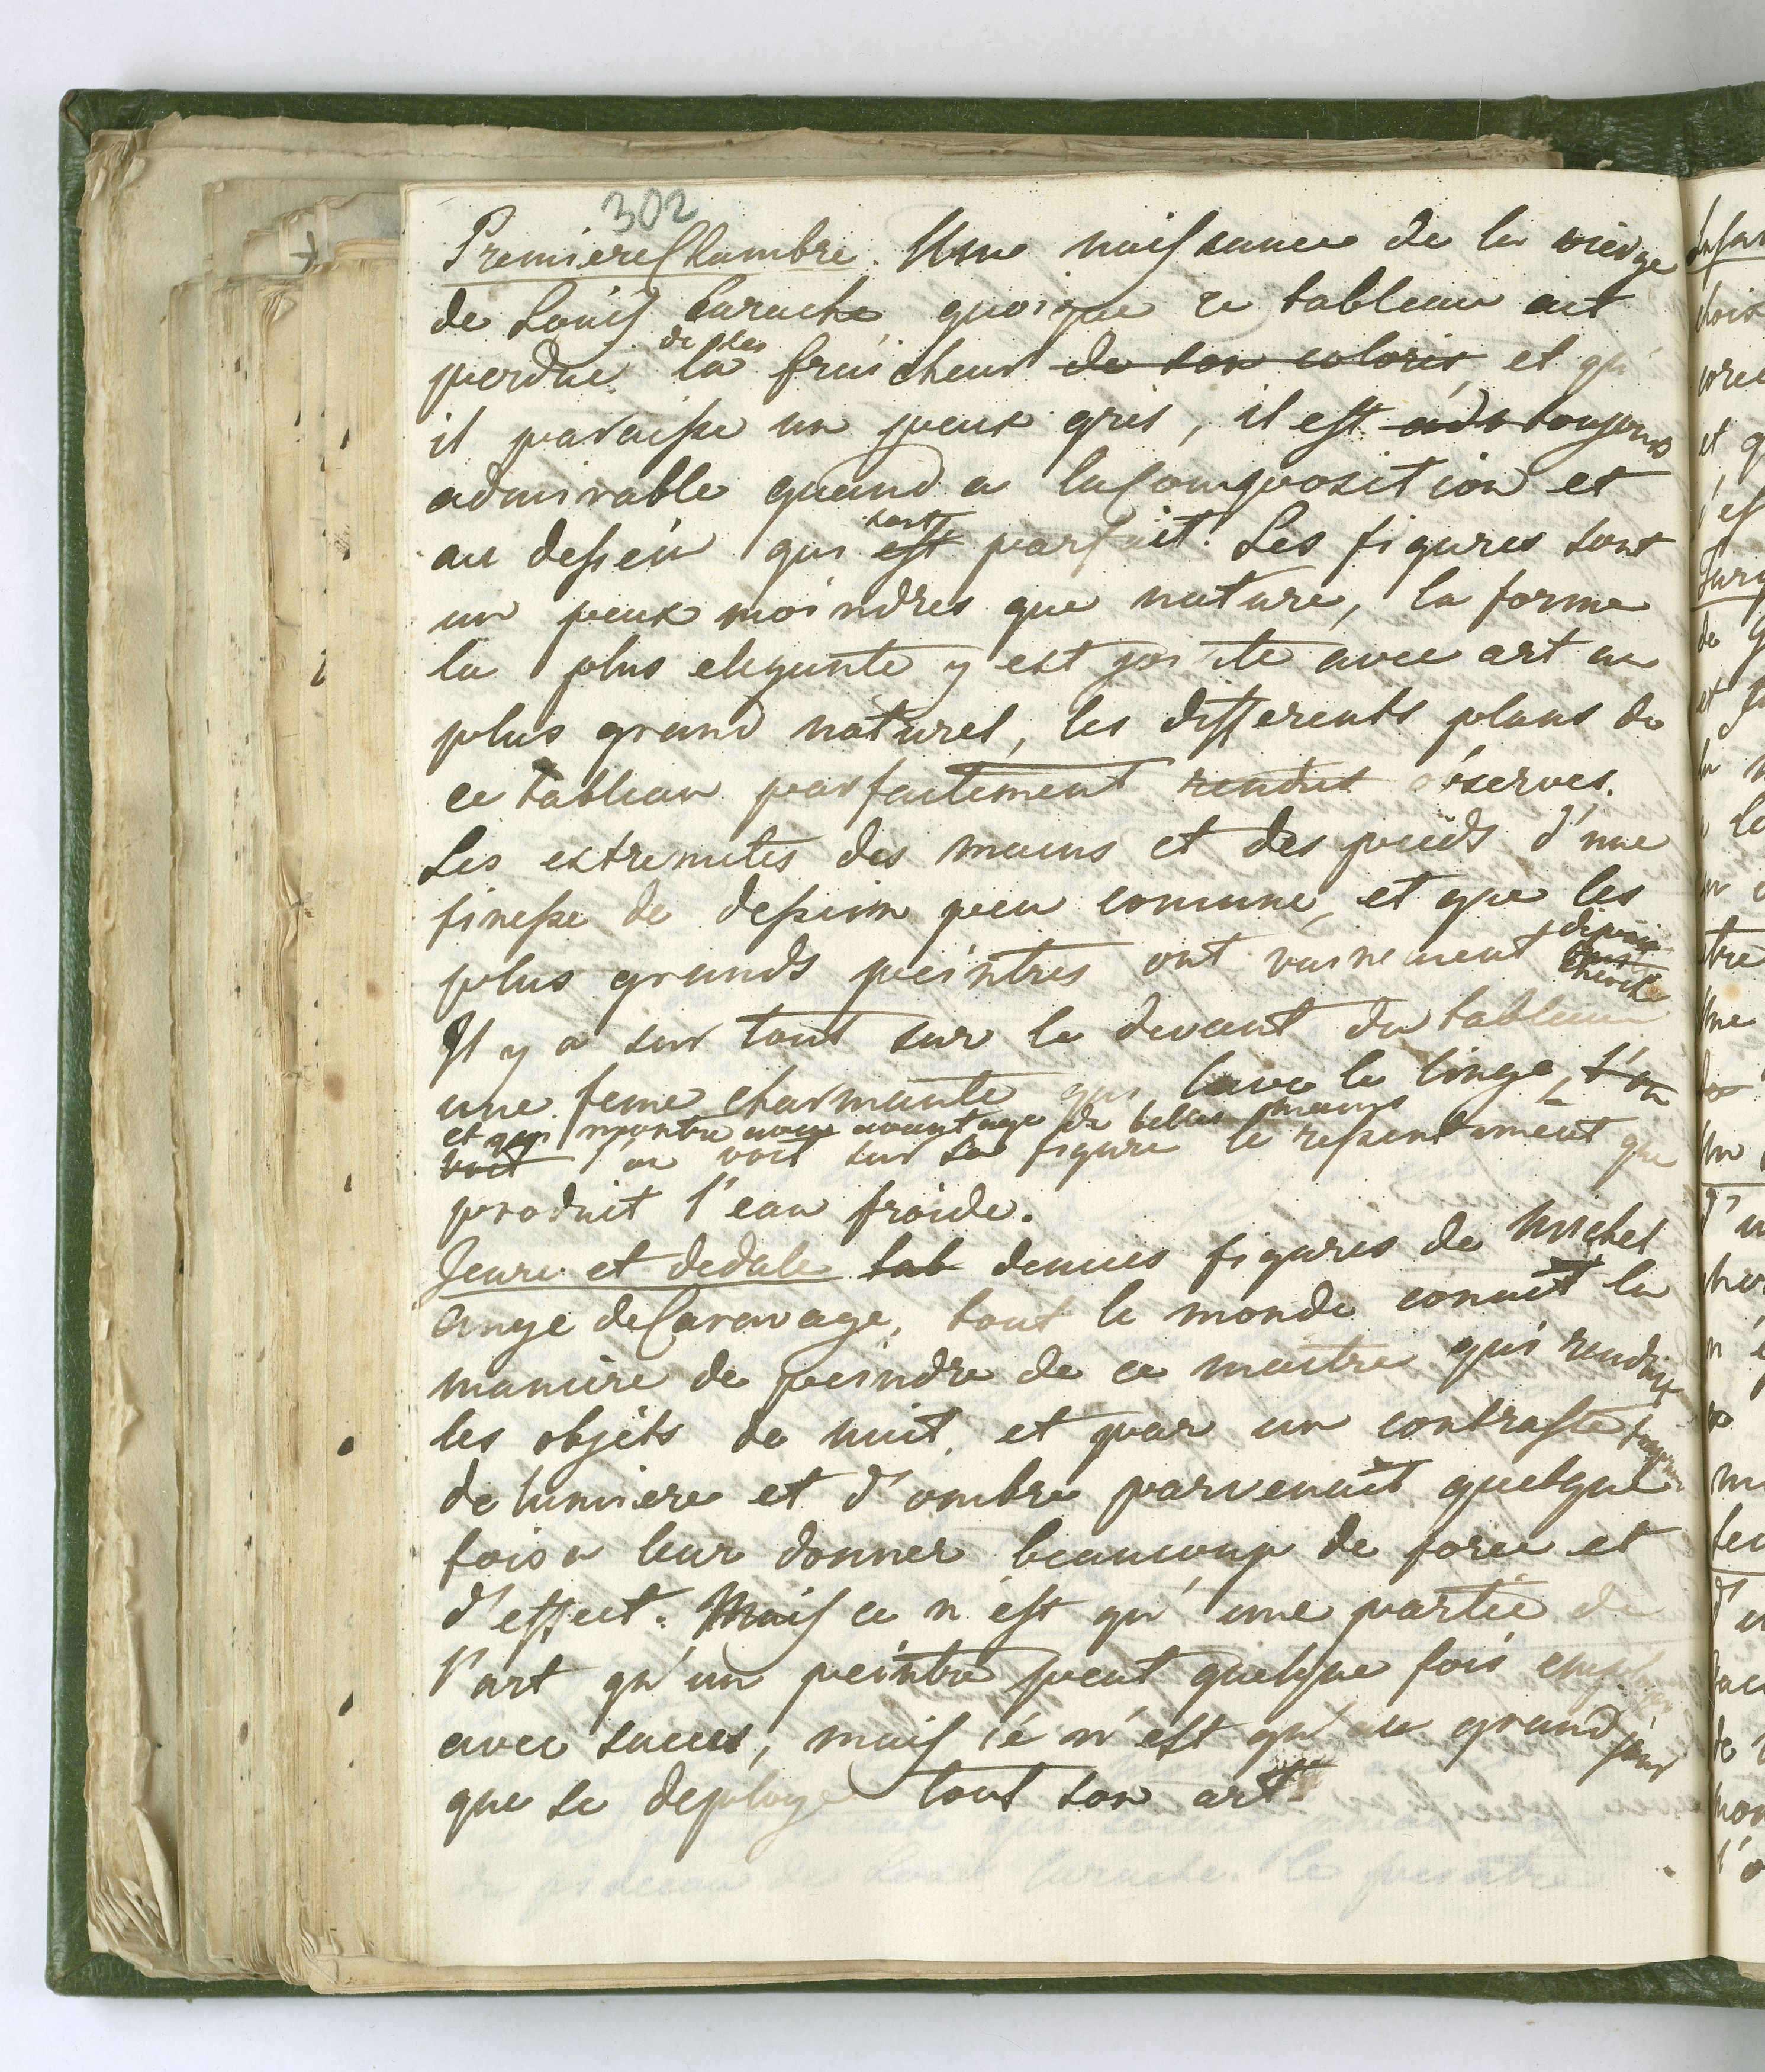 302
Premiere Chambre. Une naissance de la vierge
de Louis Carache quoique ce tableau ait
perdue de ses
la fraicheur de son coloris, et qu'
il paraisse un peux gris, il est adm toujours
admirable quand a la Composition et
au dessein qui sont
est parfait. Les figures sont
un peux moindres que nature, la forme
la plus elegante y est jointe avec art au
plus grand naturel, les differents plans de
ce tableau parfaitement rendus observes.
Les extremites des mains et des pieds d'une
finesse de dessin peu comune, et que les
plus grands peintres ont vainement depuis
cherché
Il y a sur tout sur le devant du tableau
une feme charmante qui lave le linge, l'on
et qui montre avec avantage de belles mains
voit l'on voit sur sa figure le ressentiment que
produit l'eau froide.
Icare et dedale tab demies figures de Michel
ange de Caravage, tout le monde conait la
maniere de peindre de ce maitre qui rendait
les objets de nuit, et par un contraste
de lumiere et d'ombre parvenait quelque
fois a leur donner beaucoup de force et
d'effect. Mais ce n'est qu'une partie de
l'art qu'un peintre peut quelque fois employer
avec succes, mais ce n'est qu'au grand jour
que se deploye tout son art